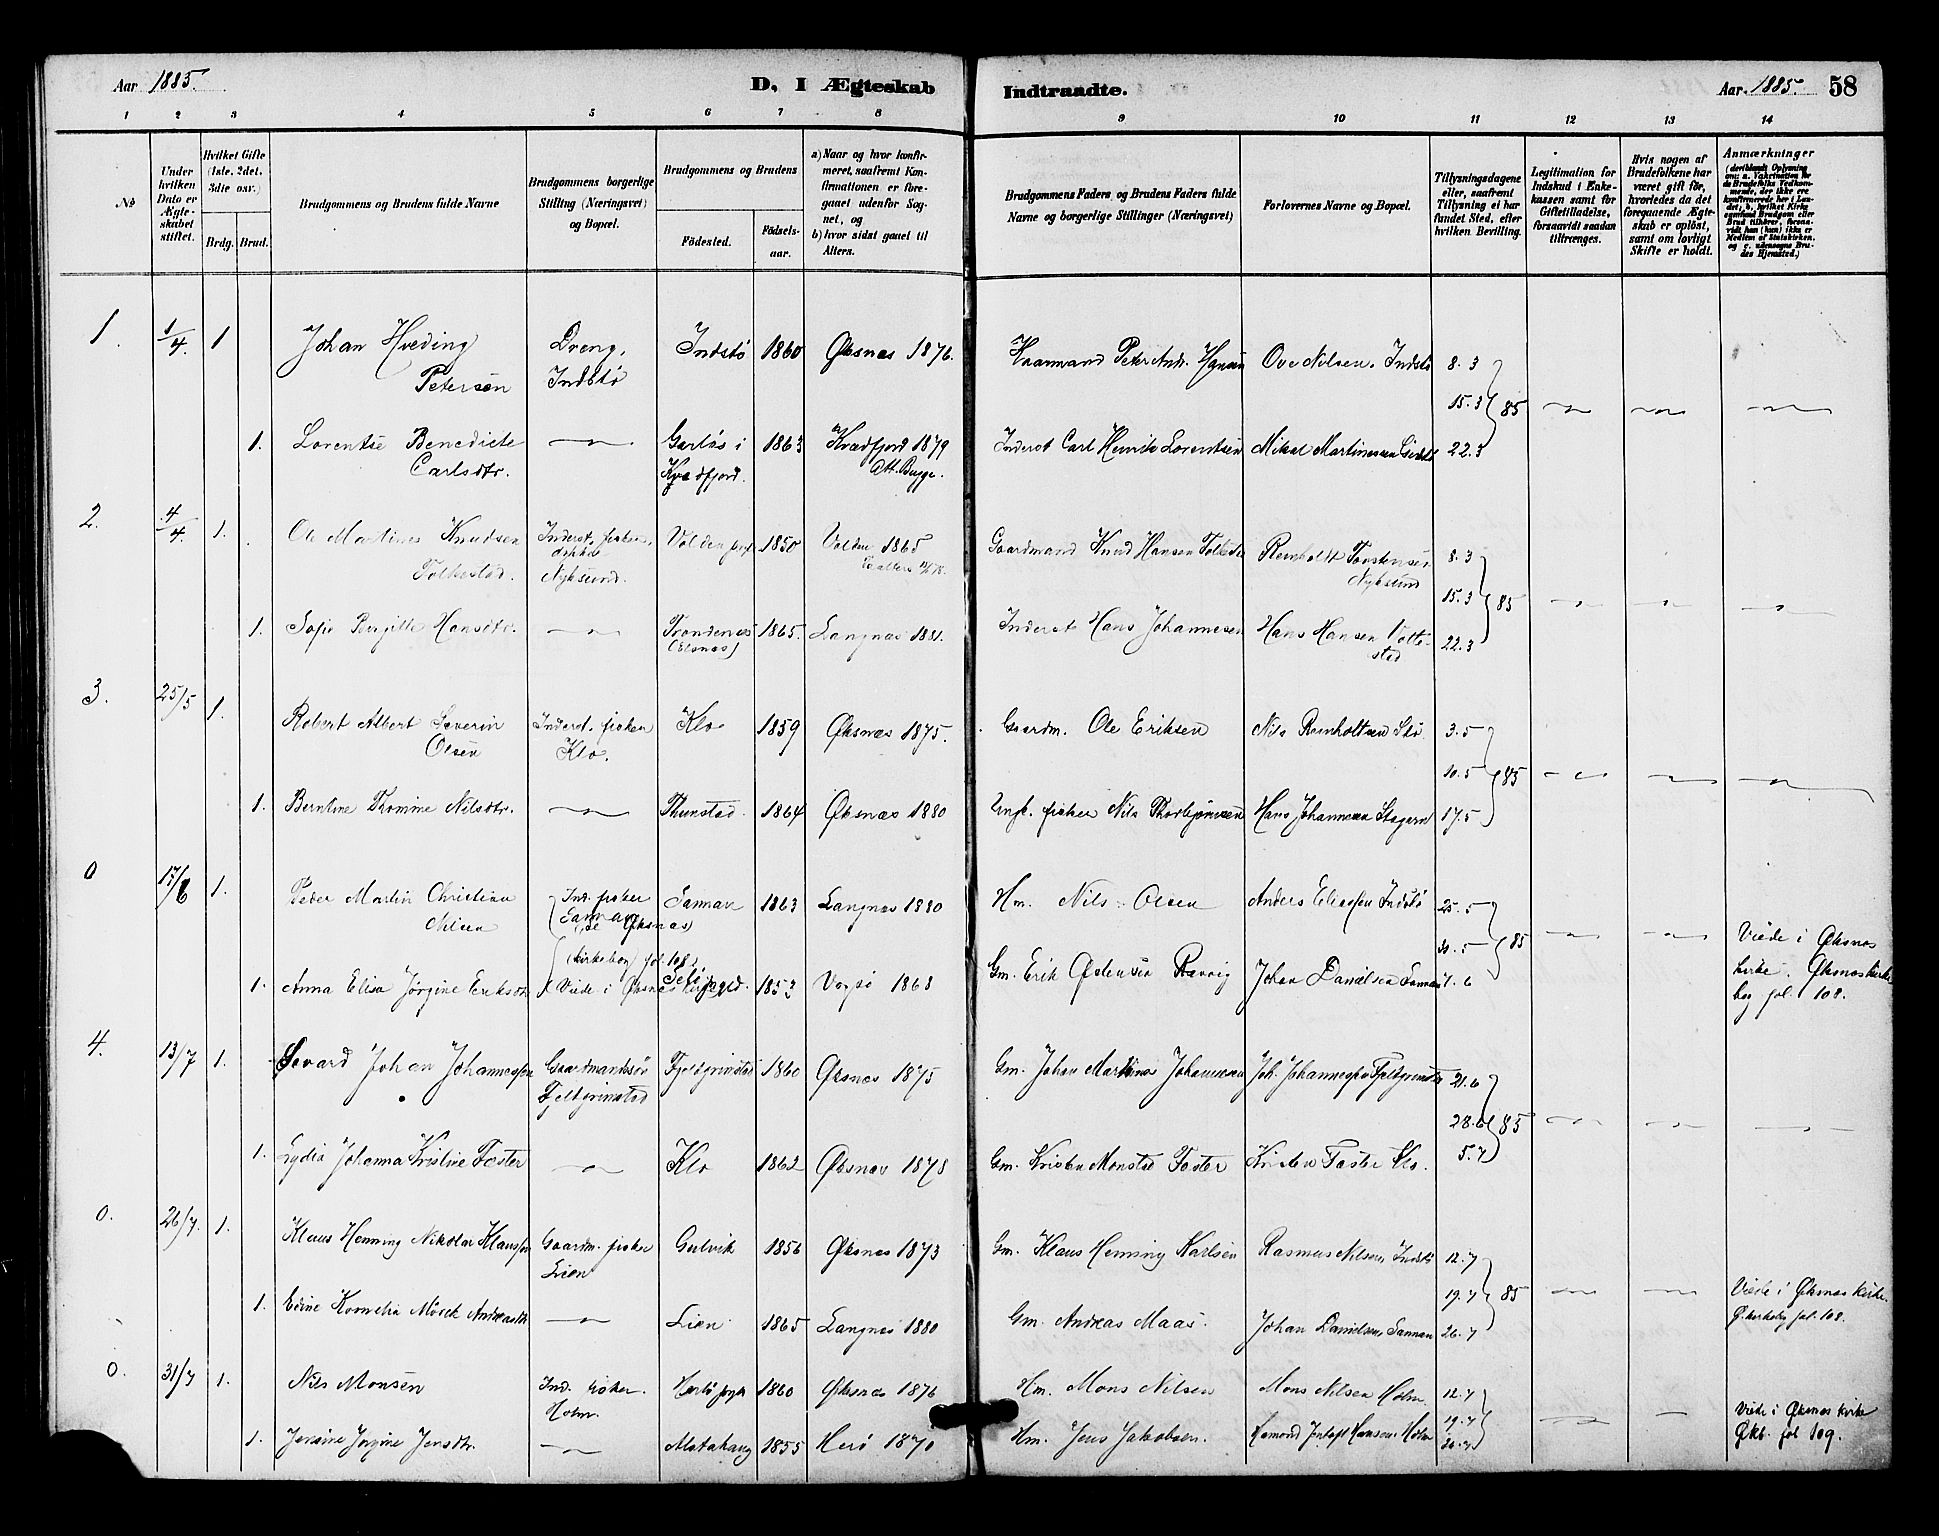 Aar 1885.
D. I Ægteskab
Indtraadte.
Aar 1885. 58
1 2 3 4 5 6 7 8 9 10 11 12 13 14
No
Under hvilken Dato er Ægteskabet stiftet.
Hvilket Gifte (1ste, 2det, 3die osv.)
Brdg. Brud.
Brudgommens og Brudens fulde Navne
Brudgommens borgerlige Stilling (Næringsvei) og Bopæl.
Brudgommens og Brudens
Födested.
Födselsaar.
a) Naar og hvor konfirmeret, saafremt Konfirmationen er foregaaet udenfor Sognet, og
b) hvor sidst gaaet til Alters.
Brudgommens Faders og Brudens Faders fulde Navne og borgerlige Stillinger (Næringsvei)
Forlovernes Navne og Bopæl.
Tillysningsdagene eller, saafremt Tillysning ei har fundet Sted, efter hvilken Bevilling.
Legitimation for Indskud i Enkekassen samt for Giftetilladelse, forsaavidt saadan tiltrænges.
Hvis nogen af Brudefolkene har været gift för, hvorledes da det foregaaende Ægteskab er oplöst, samt om lovligt Skifte er holdt.
Anmærkninger
1. 1/4. 1 Johan Hveding Petersen Dreng, Indstö Indstö 1860 Øksnes 1876.
Ove Nilsen. Indstö 8.3
15.3 85
1. Lorentse Benedicte Carlsdtr. Kvadfjord. 1863 Kvadfjord 1879
Inderst Carl Henrik Lorentsen 22.3
2. 4/4. 1. Ole Martines Knudsen Folkestad. Inderst, fisker, Nyksund. Volden 1850 Volden 1865
Gaardmand Knud Hansen Reinholdt Torstensen Nyksund 8.3
15.3 85
1. Sofie Bergitte Hansdtr. Trondenes 1865. Langnæs 1881.
Inderst Hans Johannesen Hans Hansen 22.3
3. 25/5 1. Robert Albert Severin Olsen Inderst, fisker Klo. Klo 1859 Øksnæs 1875.
Gaardm. Ole Eriksen Nils Reinholtsen Stö 3.5
10.5 85
1. Berntine Tromine Nilsdtr. Thunstad. 1864 Øksnæs 1880
fisker Nils Thorbjörnsen Hans Johannesen 17.5
0 17/6 1. Peder Martin Christian Nilsen Ind. fisker Sannan 1863 Langnæs 1880
Hm. Nils Olsen Anders Indstö 25.5
31.5 85
(kirkebog fol. 108.)
Viede i Øksnæs kirke. Øksnæs kirkebog fol. 108.
1. Anna Elisa Jörgine Eriksdtr. Viede i Øksnes 1868
Gm. Erik Johan Danielsen Sannan 7.6
4. 13/7 1. Sevard Johan Johannessen Gaardmandssön Fjeldgrinstad 1860 Øksnes 1875
Gm. Johan Martinus Johannesen Joh. Johannessen 21.6
28.6 85
1. Lydia Johanna Kristine Foster Klo 1862 Øksnes 1878
Gm. Kristen Monstad Foster Kristen Foster Klo. 5.7
0. 26/7. 1. Klaus Henning Nikolai Klaussen Gaardm. fisker Lien Gulvik 1856 Øksnæs 1873
Gm. Klaus Henning Karlsen Rasmus Nilsen Indstö 12.7
19.7 85
Viede i Øksnæs kirke. fol. 108.
1. Lien 1865 Langnes 1880
Gm. Andreas Maas. Johan Danielsen Sannan 26.7
0. 31/7 1. Nils Monsen Ind. fisker. Holm. 1860 Øksnes 1876
Hm. Mons Nilsen Mons Nilsen Holm. 12.7
19.7
Viede i Øksnæs kirke Økb. fol 109.
1. Jensine Jörgine Jensdtr. 1855 Herö 1870
Hm. Jens Jakobsen. Hansen Holm 26.7